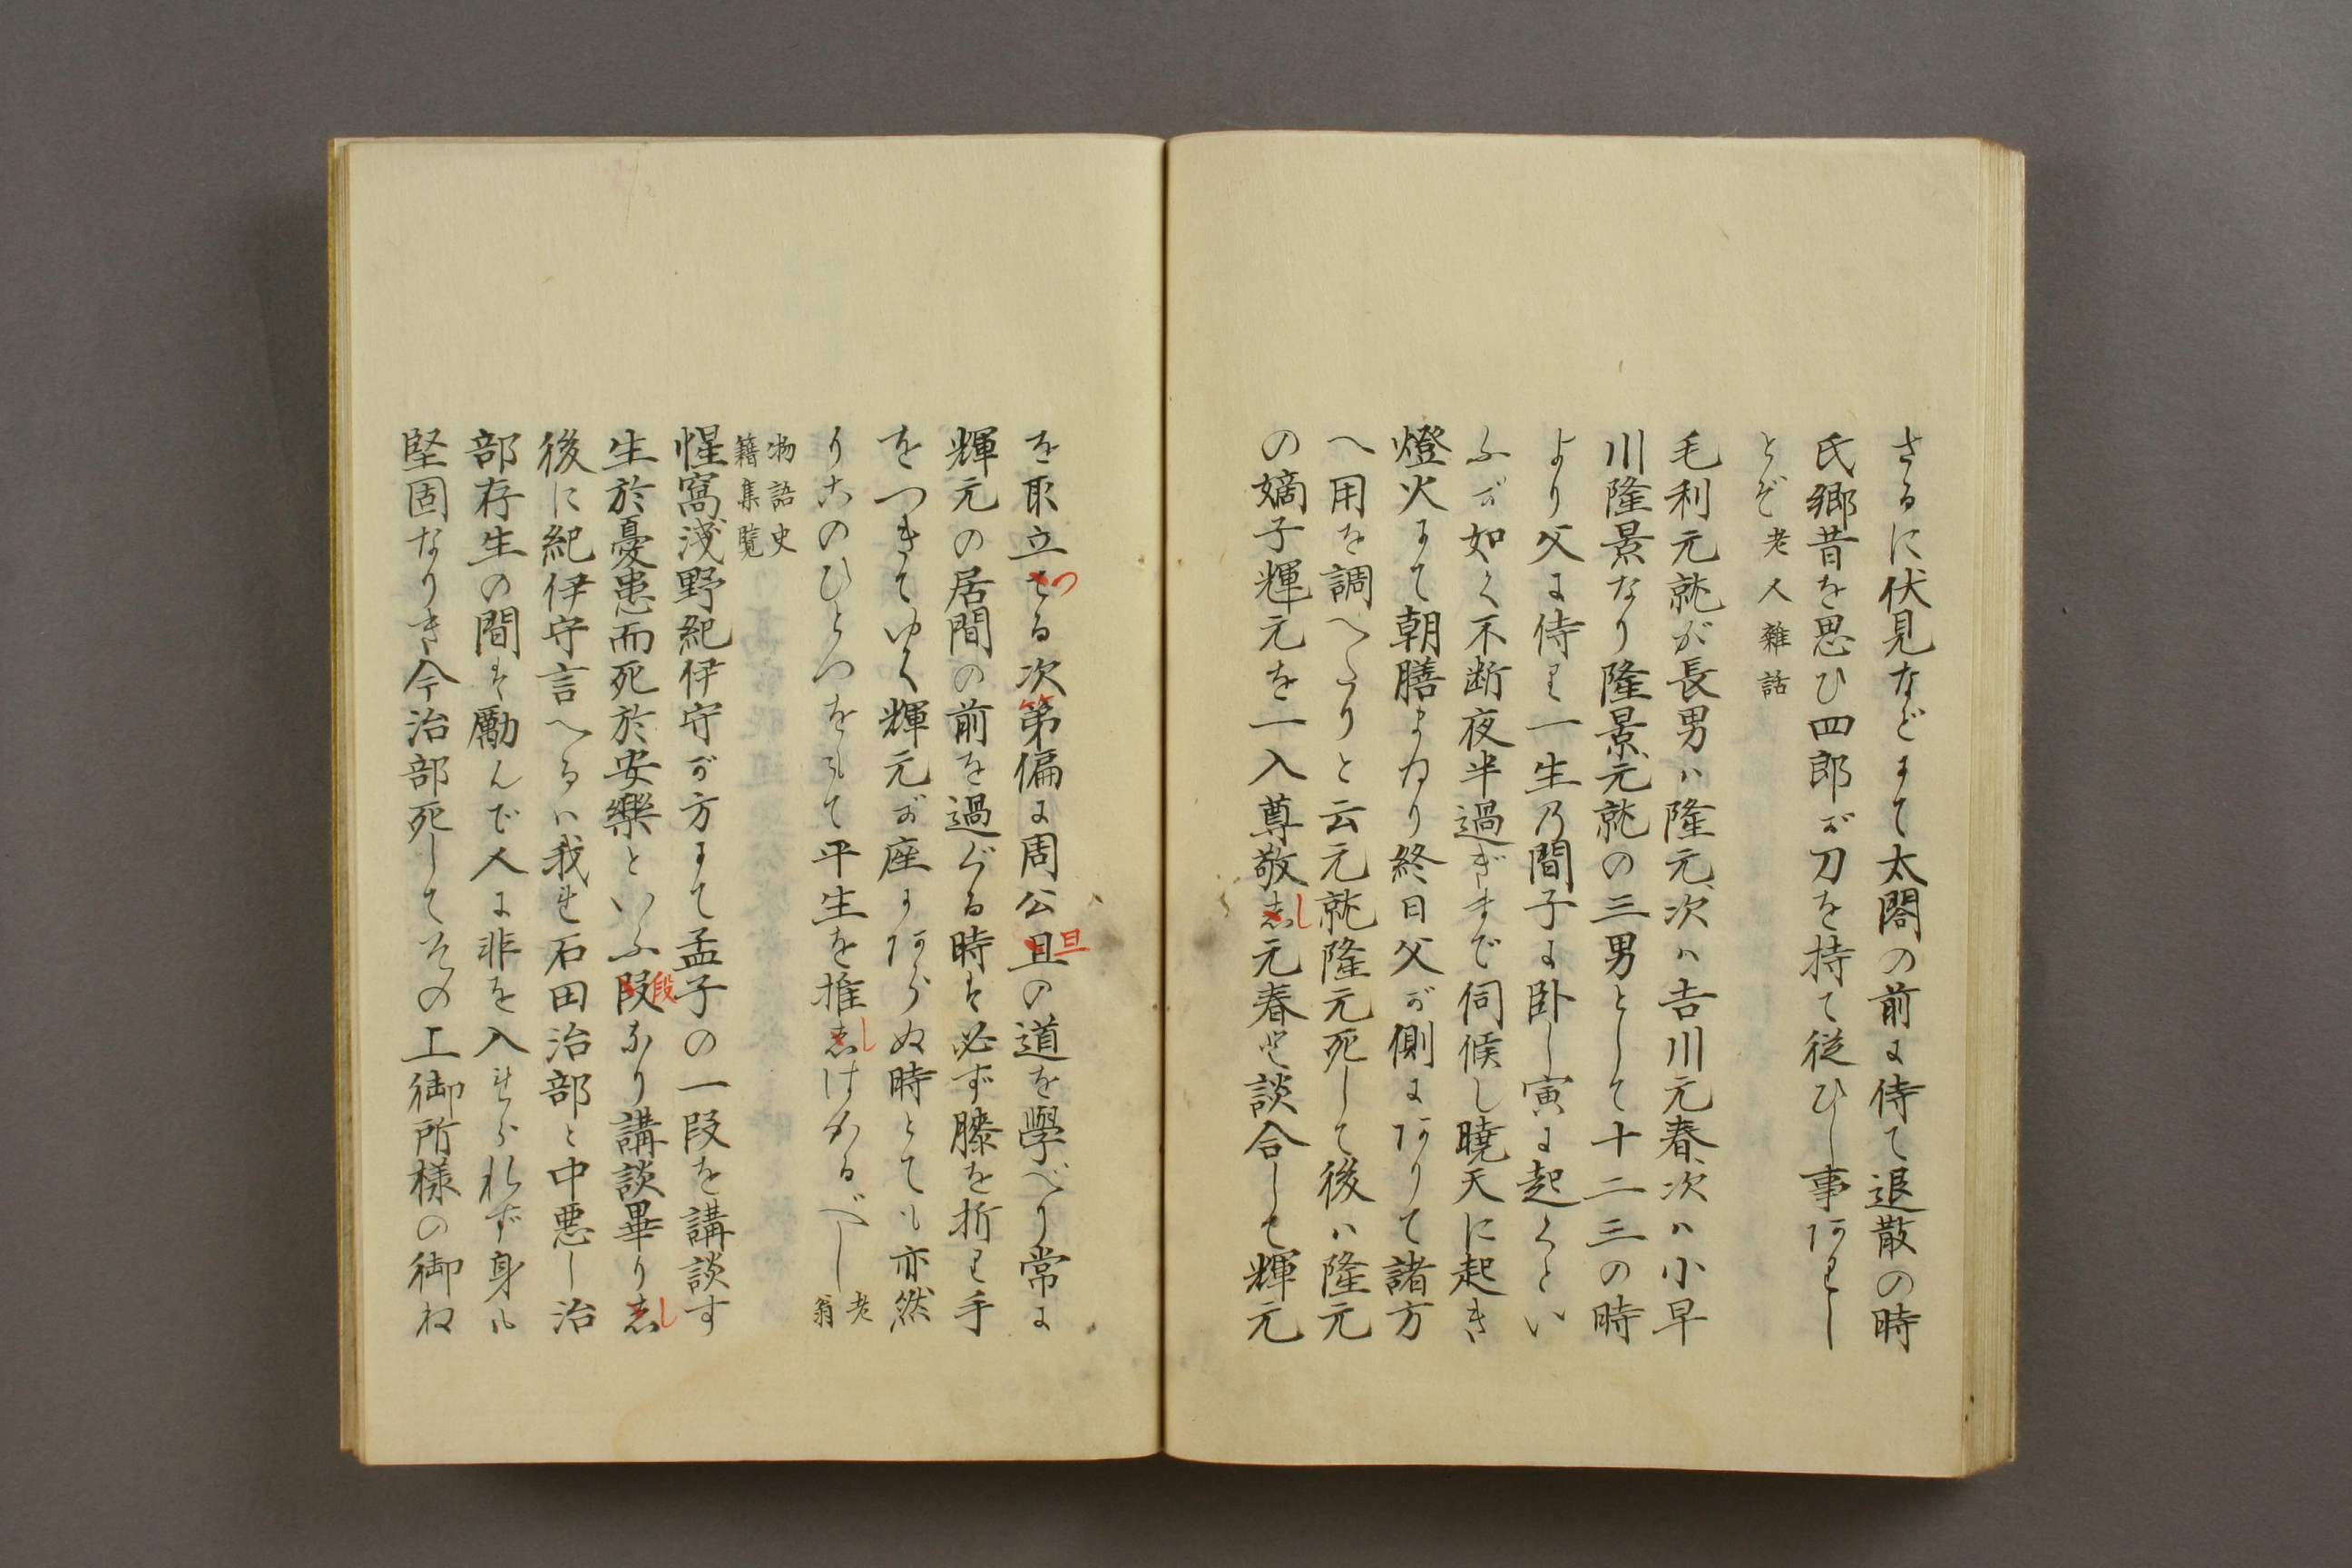 さるに伏見などにて太閤の前に侍て退散の時
氏郷昔を思ひ四郎が刀を持て従ひし事ありし
とぞ老人雑話
毛利元就が長男ハ隆元次ハ吉川元春次ハ小早
川隆景なり隆景元就の三男として十二三の時
より父に侍り一生乃間子に卧し寅に起くとい
ふが如く不断夜半過ぎまで伺候し曉天に起き
燈火にて朝膳まゐり終日父が側にありて諸方
へ用を調へたりと云元就隆元死して後ハ隆元
の嫡子輝元を一入尊敬志し元春と談合して輝元
を取立てつる次第偏に周公且旦の道を學べり常に
輝元の居間の前を過ぐる時も必ず膝を折り手
をつきてゆく輝元が座にあらぬ時とても亦然
り此のひとつをもて平生を推志しはかるべし老翁
物語史
籍集覧
惺窩淺野紀伊守が方にて孟子の一段を講談す
生於憂患而死於安樂といふ段段なり講談畢り志し
後に紀伊守言へるハ我も石田治部と中悪し治
部存生の間も勵んで人に非を入れられず身も
堅固なりき今治部死してその上御所様の御ね